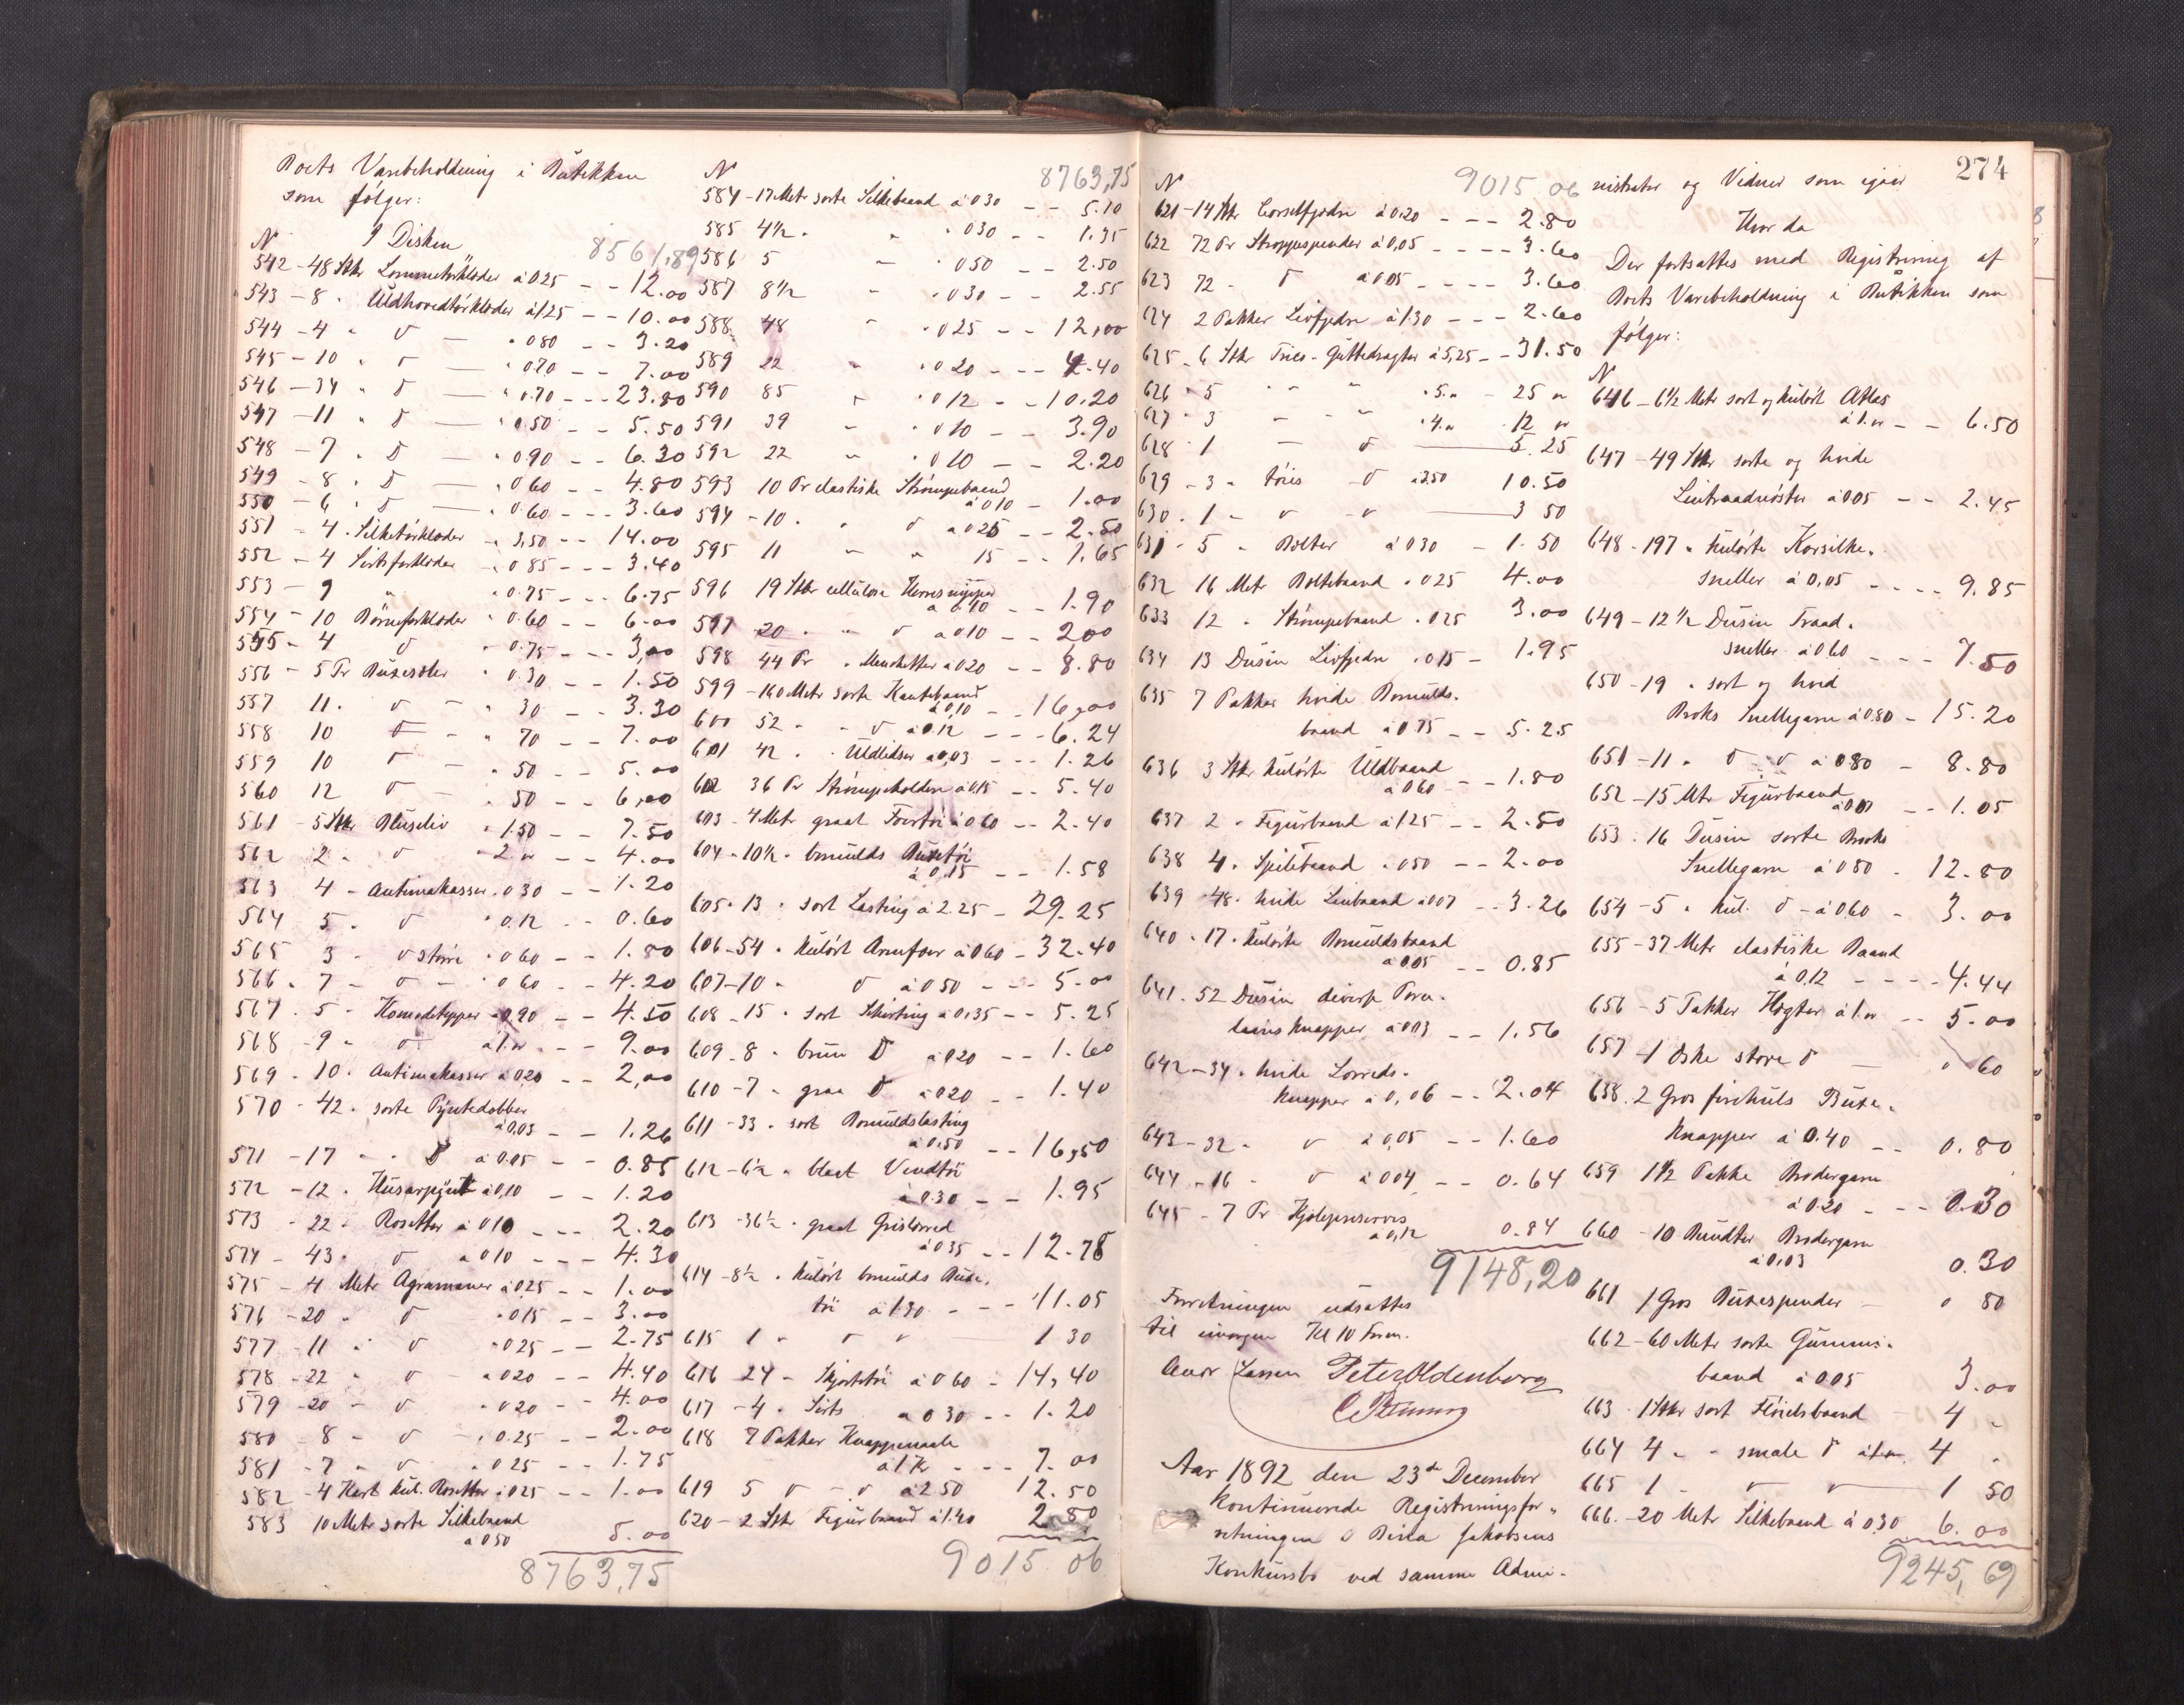 Boets Varebeholdning i Butikken
som følger:
N I Disken 8561,89
542 - 48 Stkr Lommetørklæder à 025 - - 12.00
543 - 8 " Uldhovedtørklæder à 1.25 - - 10.00
544 - 4 " d — " 080 - - 3.20
545 - 10 " d — " 0.70 - - 7.00
546 - 34 " d — " 0.70 - - - 23.80
547 - 11 " d — " 0.50 - - 5.50
548 - 7 " d — " 090 - - 6.30
549 - 8 " d — " 060 - - 4.80
550 - 6 " d — " 0.60 - - - 3.60
551 - 4 " Silketørklæder " 3,50 - - 14.00
552 - 4 Sirtsforklæder " 0 85 - - - 3.40
553 - 9 " " 0.75 - - - 6.75
554 - 10 Børneforklæder " 0.60 - - 6.00
555 - 4 d " 0.75 - - - 3,00
556 - 5 Pr Buxesæler " 0.30 - - 1.50
557 11 " d - " 30 - - 3.30
558 10 d - " 70 - - 7.00
559 10 d - " 50 - - 5.00
560 12 d - " 50 - - 6,00
561 - 5 Stkr Bluseliv " 1.50 - - 7.50
562 2 " d " 2 " - - 4.00
563 4 - Antimakasser " 0 30 - - 1.20
564 5 " d " 0.12 - 0.60
565 3 - d større " 0 60 - - 1.80
566 " 7 - d - " 0 60 - - 4.20
567 " 5 - Komodetepper à 0,90 - - 4.50
568 - 9 " d à 1. " - - 9.00
569 - 10 " Antimakasser à 0,20 - - 2,00
570 - 42 " sorte Pyntedobber
à 0,03 - - 1.26
571 - 17 - " d à 0.05 - - 0.85
572 - 12 " Husarpynt à 0,10 - - 1.20
573 - 22 " Rosetter à 0 10 - - - 2.20
574 - 43 " d à 0 10 - - - 4.30
575 - 4 Metr Agramaner à 0.25 - - 1.00
576 - 20 " d " 0 15 - - 3.00
577 - 11 " d " 0 25 - - 2.75
578 - 22 " d - " 0 20 - - 4.40
579 - 20 - d " 0 20 - - 4.00
580 - 8 - d - " 0.25 - - 2.00
581 - 7 - d " 0 25 - - 1.75
582 - 4 Kart kul. Rosetter à 0 25 - - 1.00
583 10 Metr sorte Silkebaand
à 0 50 5.00
8763,75
N 8763,75
584 - 17 Metr sorte Silkebaand à 0 30 - - 5.10
585 4 1/2 " " " 0 30 - - 1.35
586 5 - " 0 50 - - 2.50
587 8 1/2 - " 0 30 - - 2.55
588 48 " " 0 25 - - 12,00
589 22 " " 0 20 - - - 4.40
590 85 " " 0 12 - - 10,20
591 39 - " 0 10 - - 3.90
592 22 - " 0 10 - - 2.20
593 10 Pr elastiske Strømpebaand
à 0 10 - 1.00
594 - 10 " " d à 0 25 - - 2.50
595 11 - " 15 - - 1.65
596 19 Stkr cellulose Herresnipper
à 0.10 - - 1.90
597 20 " " d à 0 10 - - 2,00
598 44 Pr " Menchetter à 0 20 - - 8.80
599 - 160 Metr sorte Kantebaand
à 0,10 - - 16,00
600 52 " - d à 0.12 - - - 6.24
601 42 " " Uldlidser à 0,03 - - - 1.26
602 36 Pr Strømpeholdere à 0.15 - - 5.40
603 - 4 Metr graat Foertøi à 0 60 - - 2.40
604 - 10 1/2 " bomulds Buxetøi
à 0,15 - - 1.58
605 " 13 " sort Lasting à 2.25 - 29.25
606 - 54 " Kulørt Armfoer à 0 60 - 32.40
607 - 10 " d à 0 50 - - - 5.00
608 - 15 " sort Skirting à 0,35 - - 5.25
609 - 8 " brun d à 0 20 - - 1.60
610 - 7 " graa d à 0 20 - - 1.40
611 - 33 " sort Bomuldslasting
à 0.50 - - 16,50
612 - 6 1/2 " blaat Vendtøi
à 0.30 - - 1.95
613 - 36 1/2 " graat Grislærred
à 0 35 - - 12.78
614 - 8 1/2 " kulørt bomulds Buxe-
tøi à 1.30 - - - 11.05
615 1 " d " — 1 30
616 24 - Skjortetøi à 0 60 - 14,40
617 - 4 " Sirts à 0 30 - - 1.20
618 7 Pakker Knappenaale
à 1 K - - - 7.00
619 5 d - d à 2 50 12.50
620 - 2 Stkr Figurbaand à 1.40 2.80
9015.06
N 9015 06
621 - 14 Stkr Corsetfjedre à 0.20 - - - 2.80
622 72 Pr Stroppespender à 0,05 - - - - 3.60
623 72 - d à 0 05 - - - - 3.60
624 2 Pakker Livfjedre à 1.30 - - - 2.60
625 - 6 Stkr Tries-Guttedragter à 5,25 - - 31.50
626 " 5 " - " " 5. " - 25 "
627 " 3 - " - " 4. " - 12 "
628 " 1 — d — 5.25
629 - 3 " tøies - d à 3.50 10.50
630 " 1 - d - d — 3 50
631 " 5 " Bolter à 0 30 - 1.50
632 16 Metr Boltebaand " 0 25 4.00
633 12 " Strømpebaand " 0 25 3.00
634 13 Dusin Livfjedre " 0 15 - 1.95
635 7 Pakker hvide Bomulds-
baand à 0.75 - - 5.25
636 3 Stkr kulørte Uldbaand
à 0 60 - - 1.80
637 2 " Figurbaand à 1.25 - - 2.50
638 4 " Spilebaand " 0 50 - - 2.00
639 " 48 " hvide Linbaand à 0 07 - - 3.26
640 " 17 " kulørte Bomuldsbaand
à 0.05 - - 0.85
641 " 52 Dusin diverse Porce-
lainsknapper à 0 03 - - 1.56
642 - 34 " hvide Lærreds-
knapper à 0,06 - - 2.04
643 - 32 " d à 0,05 - - 1.60
644 - 16 - d à 0 04 - - 0.64
645 - 7 Pr Kjolepreserves
à 0,12 0.84
9148,20
Forretningen udsattes
til imorgen Kl 10 Form.
Peter Oldenborg
Aar 1892 den 23de December
kontinuerede Registreringsfor-
retningen i Jakobsens
Konkursbo ved samme Admi-
274
nistrator og Vidner som igaar
Hvor da
Der fortsattes med Registrering af
Boets Varebeholdning i Butikken som
følger:
N
646 - 6 1/2 Metr sort og kulørt Atlas
à 1. " - - 6.50
647 - 49 Stkr sorte og hvide
Lintraadnøster à 0 05 - - 2.45
648 - 197 " kulørte Korsilke-
sneller à 0,05 - - - - 9.85
649 - 12 1/2 Dusin Traad-
sneller à 0,60 - - - 7.50
650 - 19 " sort og hvid
Broks Snellegarn à 0.80 - 15.20
651 - 11 " d - d à 0 80 - 8.80
652 - 15 Mtr Figurbaand
à 0 07 - - 1.05
653 " 16 Dusin sorte Broks
Snellegarn à 0 80 - 12.80
654 - 5 " kul. d - à 0,60 - 3.00
655 - 37 Metr elastiske Baand
à 0,12 - - - - 4.44
656 - 5 Pakker Hægter à 1. " - - 5.00
657 - 1 Æske store d — 0 60
658 - 2 Gros firehuls Buxe-
knapper à 0.40 - - 0.80
659 1 1/2 Pakke Brodergarn
à 0.20 - - - 0.30
660 - 10 Bundter Brodergarn
à 0,03 0.30
661 1 Gros Buxespender — 0 50
662 - 60 Metr sorte Gummi-
baand à 0.05 3.00
663 " 1 Stkr sort Fløielsbaand — 4 "
664 4 " - smale d à 1. " 4 "
665 1 - d d — 1 50
666 - 20 Metr Silkebaand à 0.30 6.00
9245,69